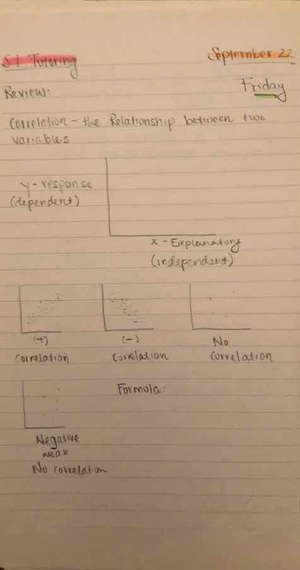 SI Tutoring
September 22
Friday
Review:
Correlation - the Relationship between two
variables
y - response
(dependent)
x - Explanatory
(independent)
(+)
correlation
(-)
Correlation
No
Correlation
Formula:
Negative
weak
No correlation